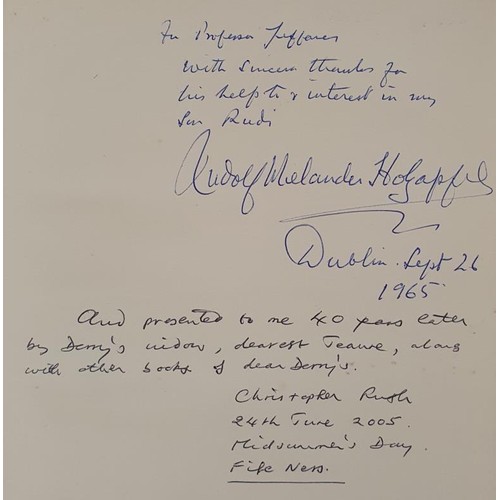 For Professor Jeffares
With sincere thanks for
his help to & interest in my
Son Rudi
Rudolf Melander Holzapfel
Dublin. Sept 26
1965
And presented to me 40 years later
by Derry's widow, dearest Jeanne, along
with other books of dear Derry's.
Christopher Rush
24th June 2005.
Midsummer's Day.
Fife Ness.